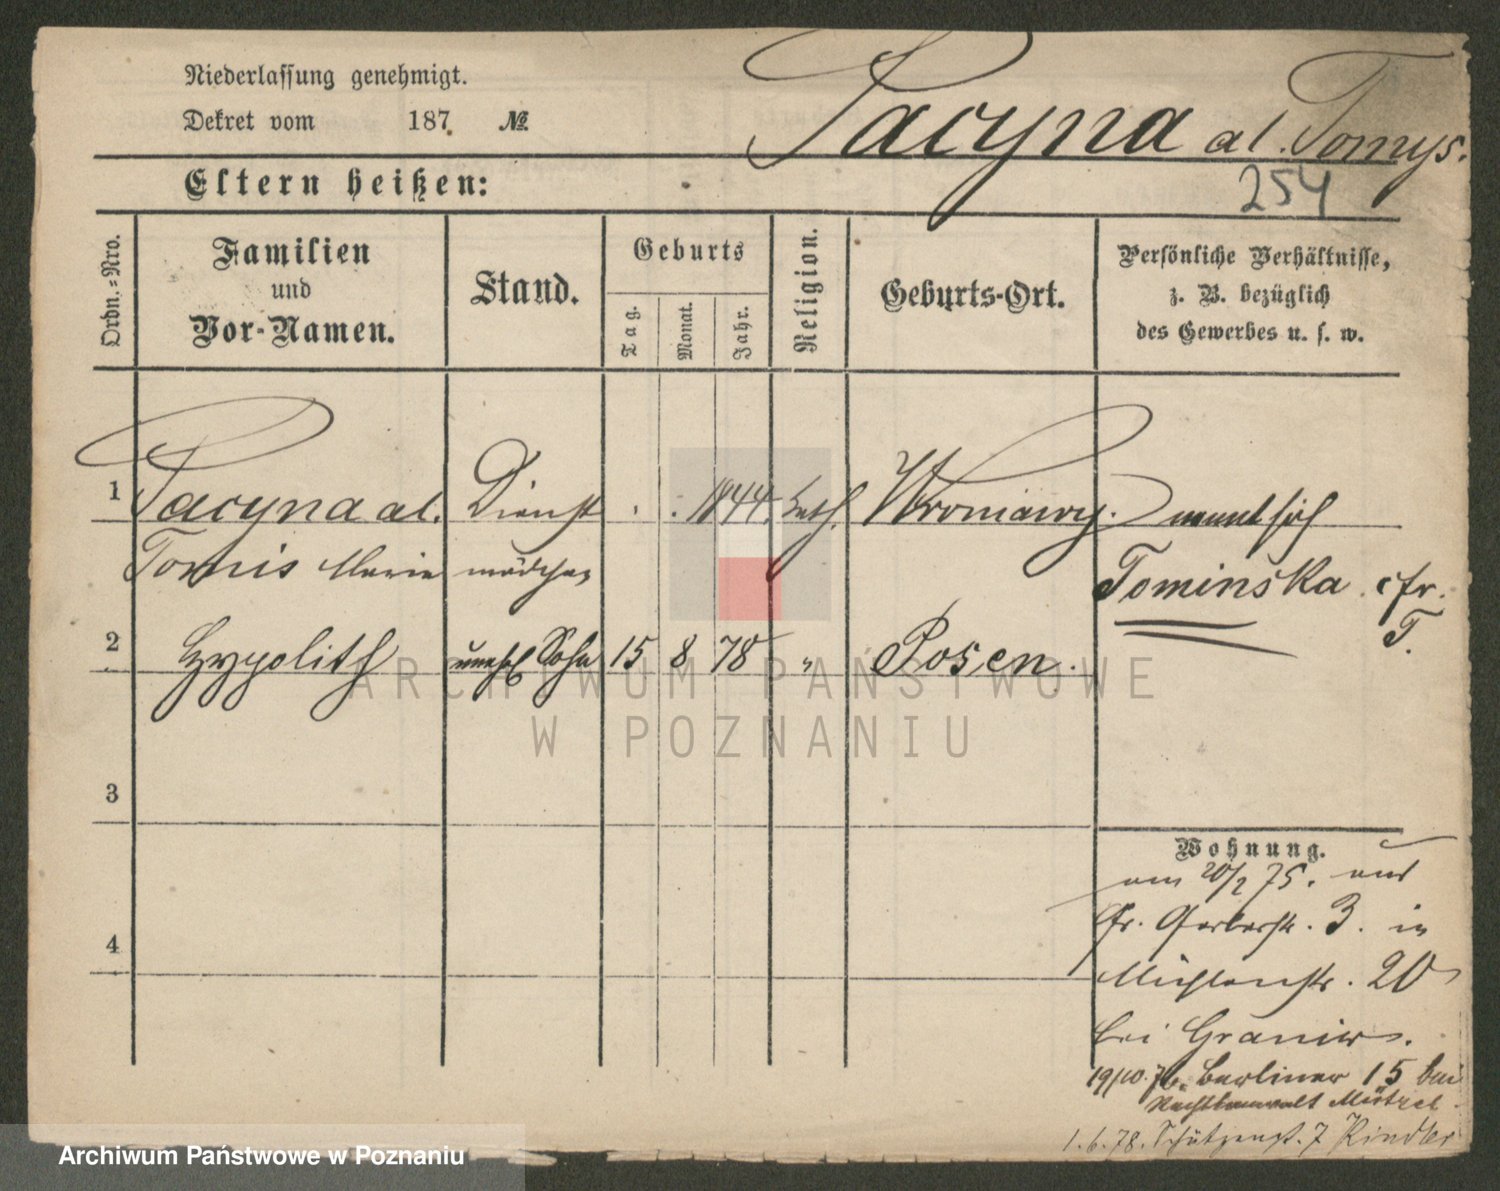 Niederlassung genehmigt.
Dekret vom 187 №
Pacyna al. Tomys.
254
Eltern heißen:
Ordn.=Nro.
Familien und Vor-Namen.
Stand.
Geburts
Tag.
Monat.
Jahr.
Religion.
Geburts-Ort.
Persönliche Verhältnisse, z. B. bezüglich des Gewerbes u. s. w.
1 Pacyna al. Dienst 1844. kath. Wroniawy. nennt sich
Tomis Marie mädchen Tominska. cfr.
T.
2 Hypolith unehl Sohn 15 8 78 " Posen.
3
Wohnung.
am 20/2 75. aus
4 Gr. Gerberstr. 3. in
Mühlenstr. 20
bei
19/10. 76. Berliner 15 bei
Rechtsanwalt Mützel
1.6.78. Schützenst. 7 Kindler
ARCHIWUM PAŃSTWOWE
W POZNANIU
Archiwum Państwowe w Poznaniu